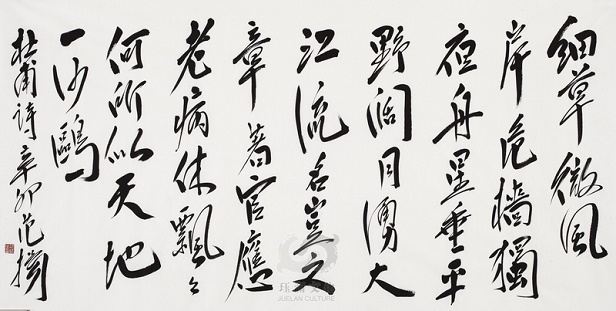 細草微風
岸危檣獨
夜舟星垂平
野闊月湧大
江流名豈文
章著官應
老病休飄々
何所似天地
一沙鷗
杜甫詩 辛卯 范
JUELAN CULTURE